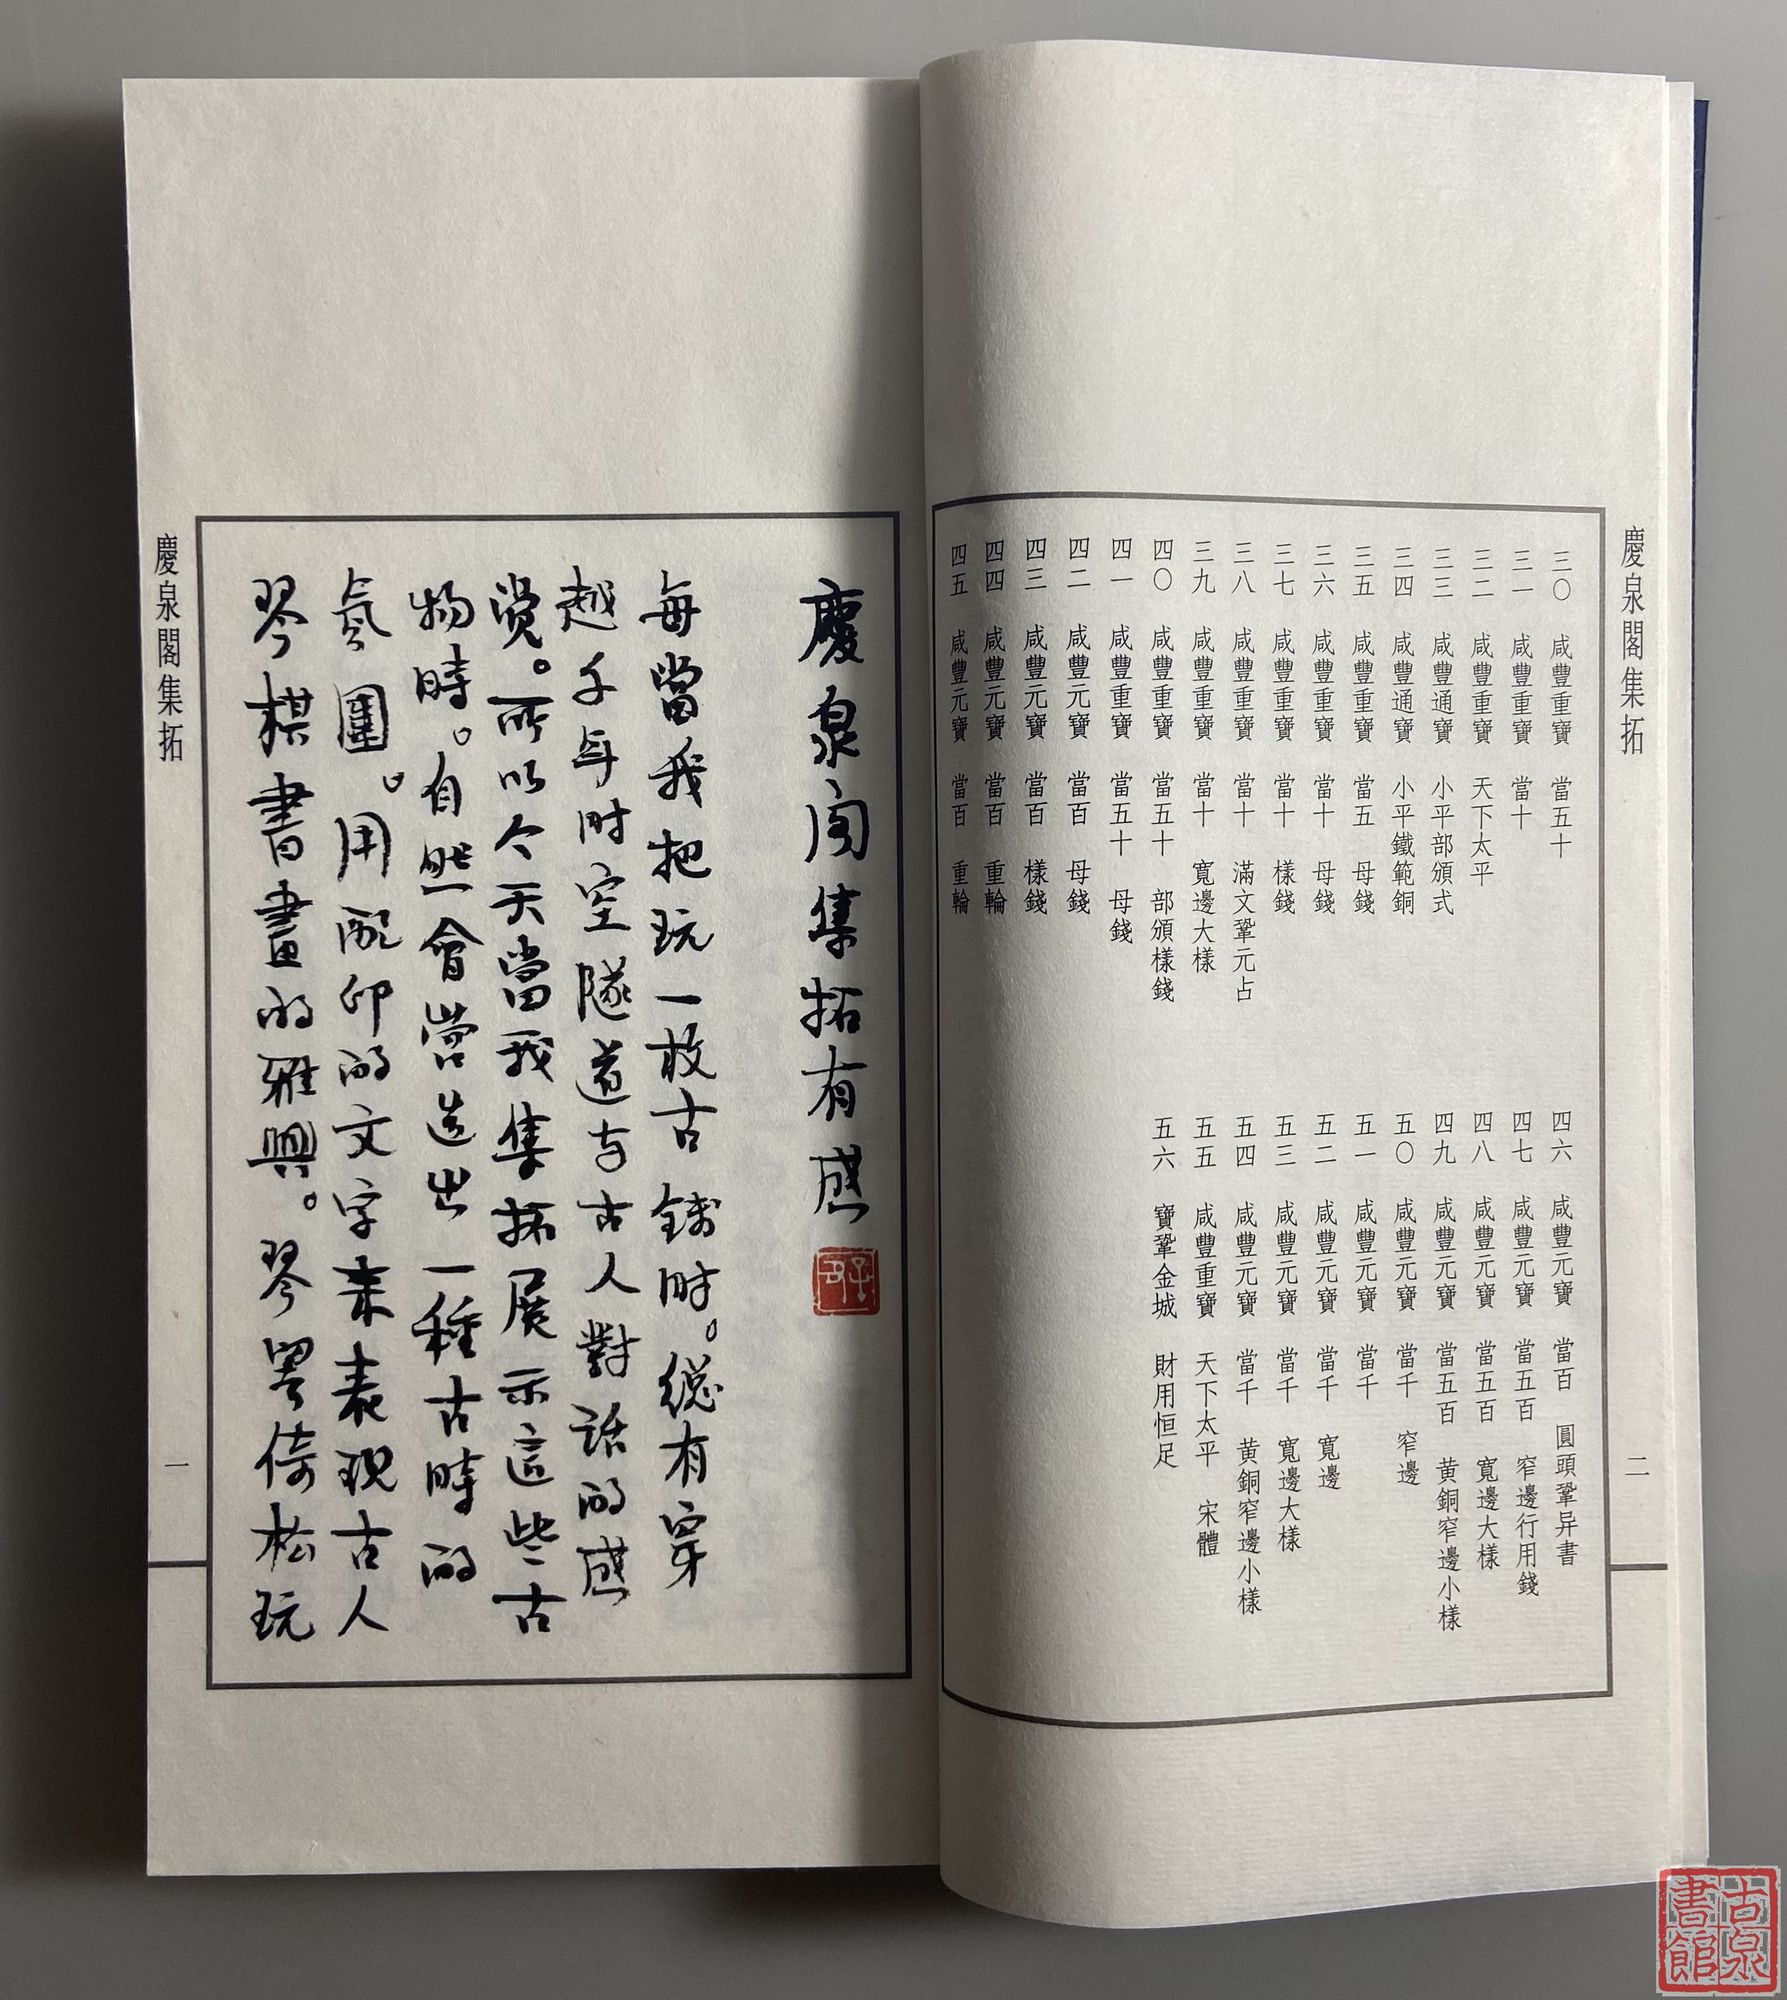 慶泉閣集拓
三〇 咸豐重寶 當五十
三一 咸豐重寶 當十
三二 咸豐重寶 天下太平
三三 咸豐通寶 小平部頒式
三四 咸豐通寶 小平鐵範銅
三五 咸豐重寶 當五 母錢
三六 咸豐重寶 當十 母錢
三七 咸豐重寶 當十 樣錢
三八 咸豐重寶 當十 滿文鞏元占
三九 咸豐重寶 當十 寬邊大樣
四〇 咸豐重寶 當五十 部頒樣錢
四一 咸豐重寶 當五十 母錢
四二 咸豐元寶 當百 母錢
四三 咸豐元寶 當百 樣錢
四四 咸豐元寶 當百 重輪
四五 咸豐元寶 當百 重輪
四六 咸豐元寶 當百 圓頭鞏异書
四七 咸豐元寶 當五百 窄邊行用錢
四八 咸豐元寶 當五百 寬邊大樣
四九 咸豐元寶 當五百 黄銅窄邊小樣
五〇 咸豐元寶 當千 窄邊
五一 咸豐元寶 當千
五二 咸豐元寶 當千 寬邊
五三 咸豐元寶 當千 寬邊大樣
五四 咸豐元寶 當千 黄銅窄邊小樣
五五 咸豐重寶 天下太平 宋體
五六 寶鞏金城 財用恒足
二
慶泉阁集拓有感
每當我把玩一枚古錢时。總有穿
越千年时空隧道与古人對話的感
覺。所以今天當我集拓展示這些古
物時。自然會営造出一種古時的
氛圍。用配印的文字来表現古人
琴棋書畫的雅興。琴罢倚松玩
慶泉閣集拓
一
古泉
書館